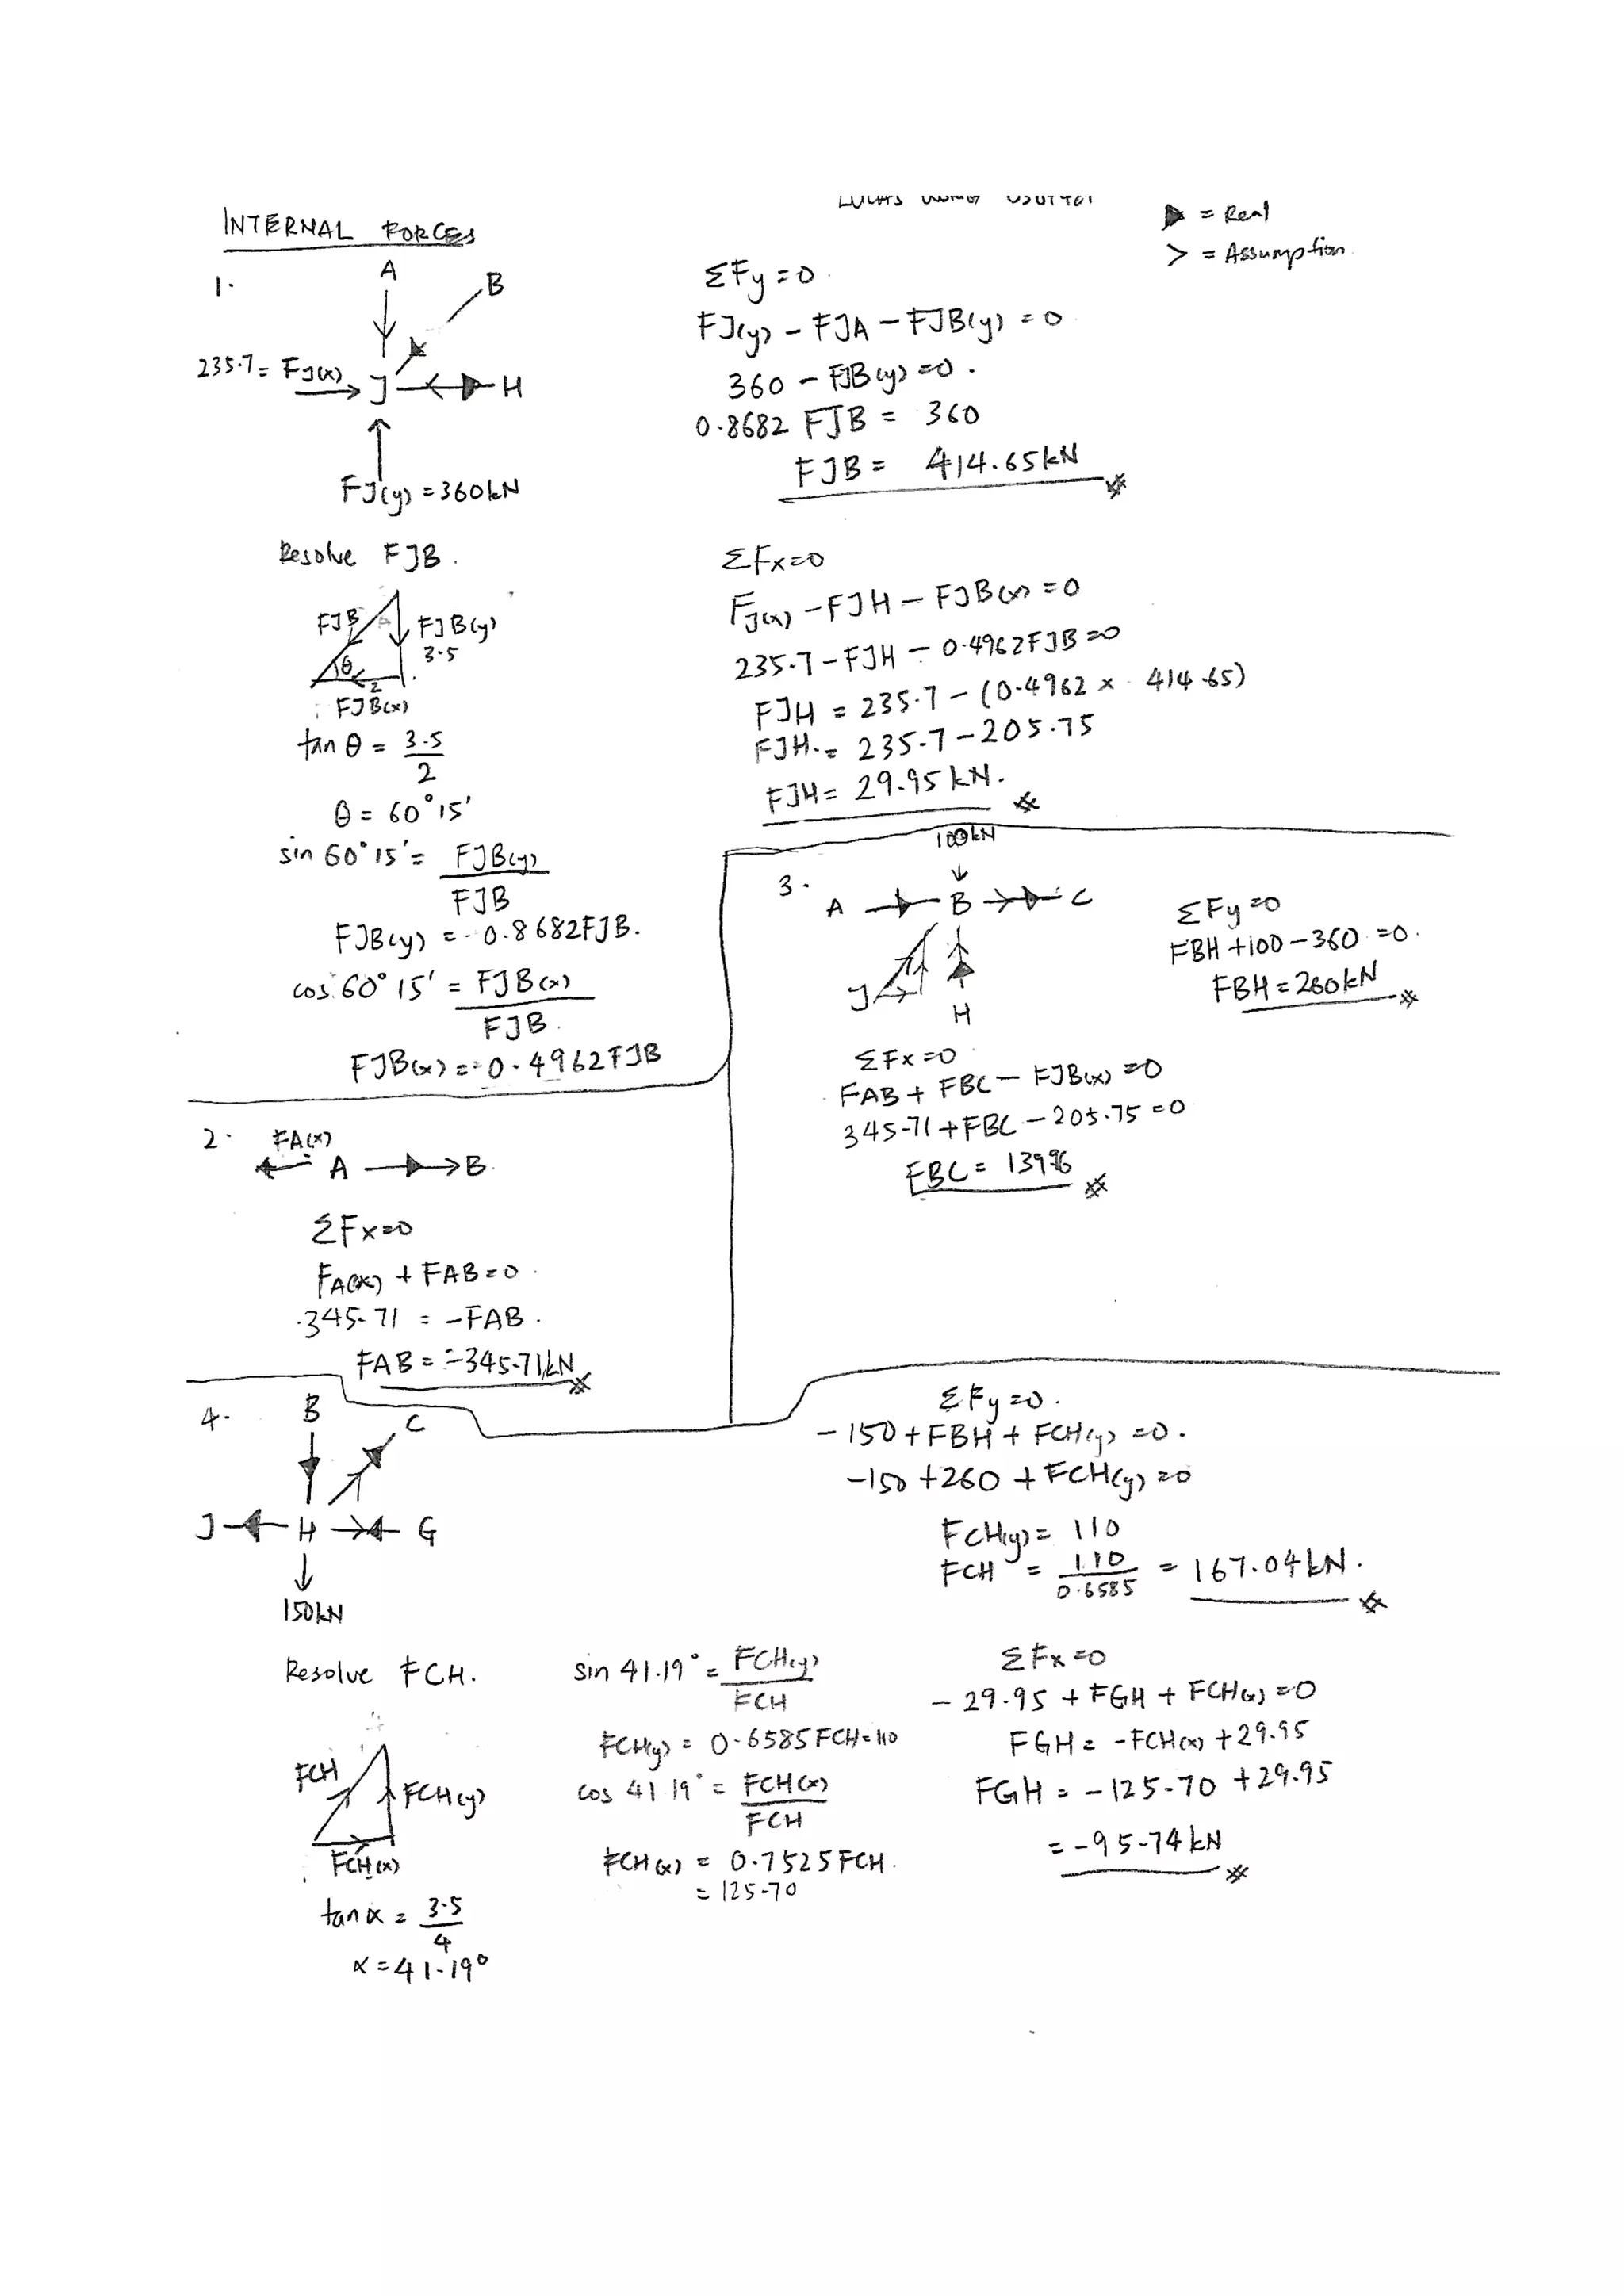 INTERNAL FORCES
▶ = Real
> = Assumption
1.
A
B
235.7 = FJ(x)
J
H
FJ(y) = 360kN
Resolve FJB.
FJB
FJB(y)
3.5
θ
2
FJB(x)
tan θ = 3.5
2
θ = 60°15'
sin 60°15' = FJB(y)
FJB
FJB(y) = 0.8682FJB.
cos 60°15' = FJB(x)
FJB
FJB(x) = 0.4962FJB
ΣFy=0
FJ(y) - FJA - FJB(y) = 0
360 - FJB(y) = 0.
0.8682 FJB = 360
FJB = 414.65kN
ΣFx=0
FJ(x) - FJH - FJB(x) = 0
235.7 - FJH - 0.4962FJB = 0
FJH = 235.7 - (0.4962 x 414.65)
FJH = 235.7 - 205.75
FJH = 29.95 kN.
2.
FA(x)
A
B
ΣFx=0
FA(x) + FAB = 0
345.71 = -FAB.
FAB = -345.71kN
3.
100kN
A
B
C
J
H
ΣFy=0
FBH +100-360 =0.
FBH = 260kN
ΣFx=0
FAB + FBC - FJB(x) = 0
345.71 + FBC - 205.75 = 0
FBC = 139.96
4.
B
C
J
H
G
150kN
ΣFy=0.
-150 + FBH + FCH(y) = 0.
-150 +260 + FCH(y) = 0
FCH(y) = 110
FCH = 110 = 167.04kN.
0.6585
Resolve FCH.
FCH
FCH(y)
FCH(x)
tan α = 3.5
4
α = 41.19°
sin 41.19° = FCH(y)
FCH
FCH(y) = 0.6585FCH = 110
cos 41.19° = FCH(x)
FCH
FCH(x) = 0.7525FCH.
= 125.70
ΣFx=0
- 29.95 + FGH + FCH(x) = 0
FGH = -FCH(x) + 29.95
FGH = -125.70 + 29.95
= -95.74kN